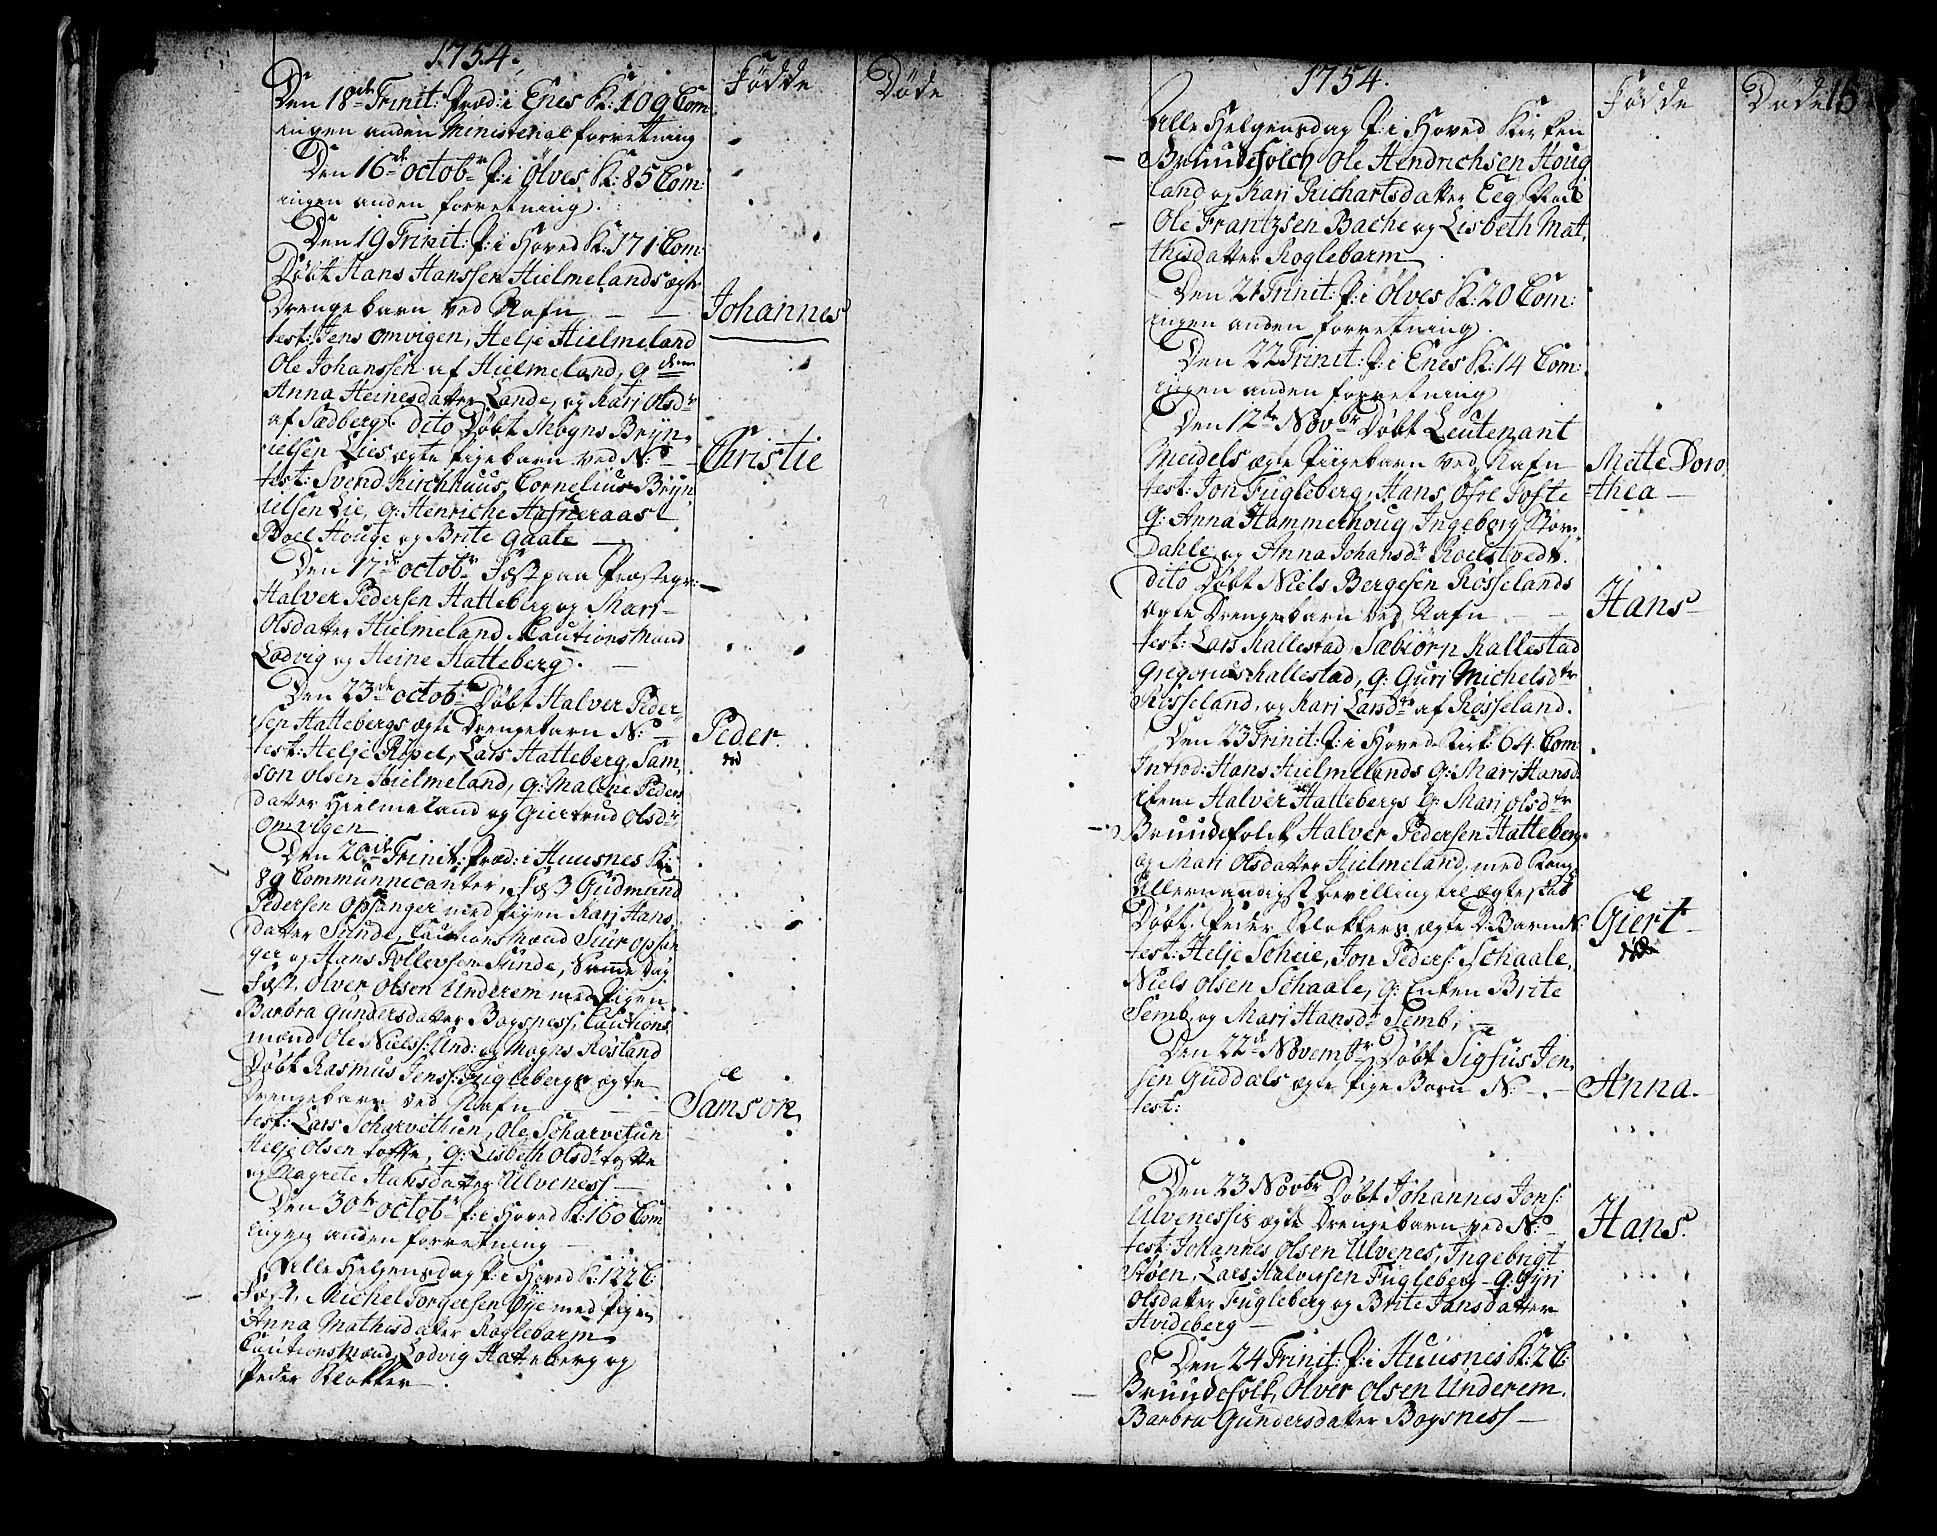 1754.
Födde
Døde
Den 18de Trinit: Præd: i Enes K: 109 Com
ingen anden Ministerial forretning
Den 16de octobr P: i Ølves K: 85 Com:
ingen anden forretning.
Den 19 Trinit: P: i Hoved K: 171 Com:
Døbt Hans Hanssen Hielmelands ægte
Drengebarn ved Nafn — —
Johannes
test: Jens omvigen, Helje Hielmeland
Ole Johanssen af Hielmeland, q
Anna Heinesdatter Lande, og Kari olsdr
af Sædberg. dito Døbt Mogns Bryn-
ielsen Lies ægte Pigebarn ved N: —
Christie
test: Svend Kirchhuus, Cornelius Bryn
ielsen Lie, q: Henriche Hafneraas
Boel Houge og Brite Gaale —
Den 17de octobr Fæst paa Præstegr:
Halver Pedersen Hatteberg og Mari
Olsdatter Hielmeland Cautions Mænd
Lodvig og Heine Hatteberg. —
Den 23de octobr Døbt Halver Peder-
sen Hattebergs ægte Drengebarn N: —
Peder.
død
test: Helje Ripel, Lars Hatteberg, Sam-
son olsen Hielmeland, q: Malene Peders
datter Hielmeland og Giertrud Olsdr
Omvigen
Den 20de Trinit: Præd: i Huusnes K:
89 Communnecanter, Fæst Gudmund
Pedersen Opsanger med Pigen Kari Hans
datter Sunde, Cautions mænd Siur opsan
ger og Hans Tollevsen Sunde, Samme Dag
Fæst, Olver Olsen Underem med Pigen
Barbra Gundersdatter Bogsness, Cautions
mænd Ole Nielss: Und: og Mogns Røsland
Døbt Rasmus Jenss: Fuglebergs ægte
Drengebarn ved Nafn — —
Samson
test: Lars Scharvethun, Ole Scharvetun
Helje Olsen tofte, q: Lisbeth Olsdr tofte
og Magrete Hansdatter Ulveness —
Den 30te octobr P: i Hoved K: 160 Com
ingen anden forretning —
Alle Helgensdag P: i Hoved K: 122 C:
Fæst, Michel Torgersen Øye med Pigen
Anna Mathisdatter Røglebarm
Cautions Mænd, Lodvig Hatteberg og
Peder Klokker.
1754.
Födde
Døde 15
Alle Helgensdag P: i Hoved Kirken
Bruudefolch Ole Hendrichsen Houg
land og Kari Richartsdatter Eeg
Ole Frantzsen Bache og Lisbeth Mat
thisdatter Røglebarm
Den 21 Trinit: P: i Ølves K: 20 Com:
ingen anden forretning.
Den 22 Trinit: P: i Enes K: 14 Com:
ingen anden forretning
Den 12te Novbr Døbt Leutenant
Meidels ægte Piigebarn ved Nafn
Mette Doro
thea —
test: Jon Fugleberg, Hans Øfre Tofte
q: Anna Hammerhoug Ingeborg Stor-
Dahle og Anna Johansdr Roelstvedt.
dito Døbt Niels Bergesen Røsselands
ægte Drengebarn ved Nafn — —
Hans
test: Lars Kallestad Sæbiörn Kallestad
Gregorius Kallestad, q: Guri Michelsdtr
Røsseland, og Kari Larsdtr af Røsseland.
Den 23 Trinit: P: i Hoved Kirk: 64 Com
Introd: Hans Hielmelands Q: Mari Hansd:
item Halver Hattebergs Q: Mari olsdtr
Bruudefolck Halver Pedersen Hatteberg
og Mari Olsdatter Hielmeland, med Kong:
Allernaadigst bevilling til Ægteskab
Døbt. Peder Klokkers ægte D: Barn N:
Giert
død
test: Helje Scheie, Jon Peders: Schaale,
Niels Olsen Schaale, q: Enken Brite
Semb, og Mari Hansdr Semb; —
Den 22de Novembr Døbt Sigfus Jen-
sen Guddals ægte Pige Barn N: —
Anna.
test:
Den 23 Novbr Døbt Johannes Jons:
Ulvenessis ægte Drengebarn ved N: —
Hans.
test: Johannes Olsen Ulvenes, Ingebrigt
Støen, Lars Halversen Fugleberg — q: Gyri
Olsdatter Fugleberg og Brite Jansdatter
Hvideberg —
Den 24 Trinit: P: i Huusnes K: 2 C:
Bruudefolk, Ølver Olsen Underem.
Barbra Gundersdatter Bogsness —